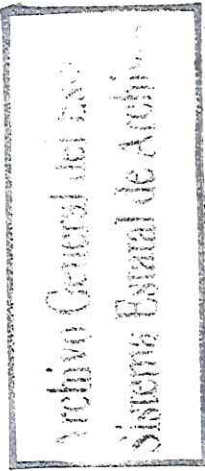 Archivo General del Est
Sistema Estatal de Archi